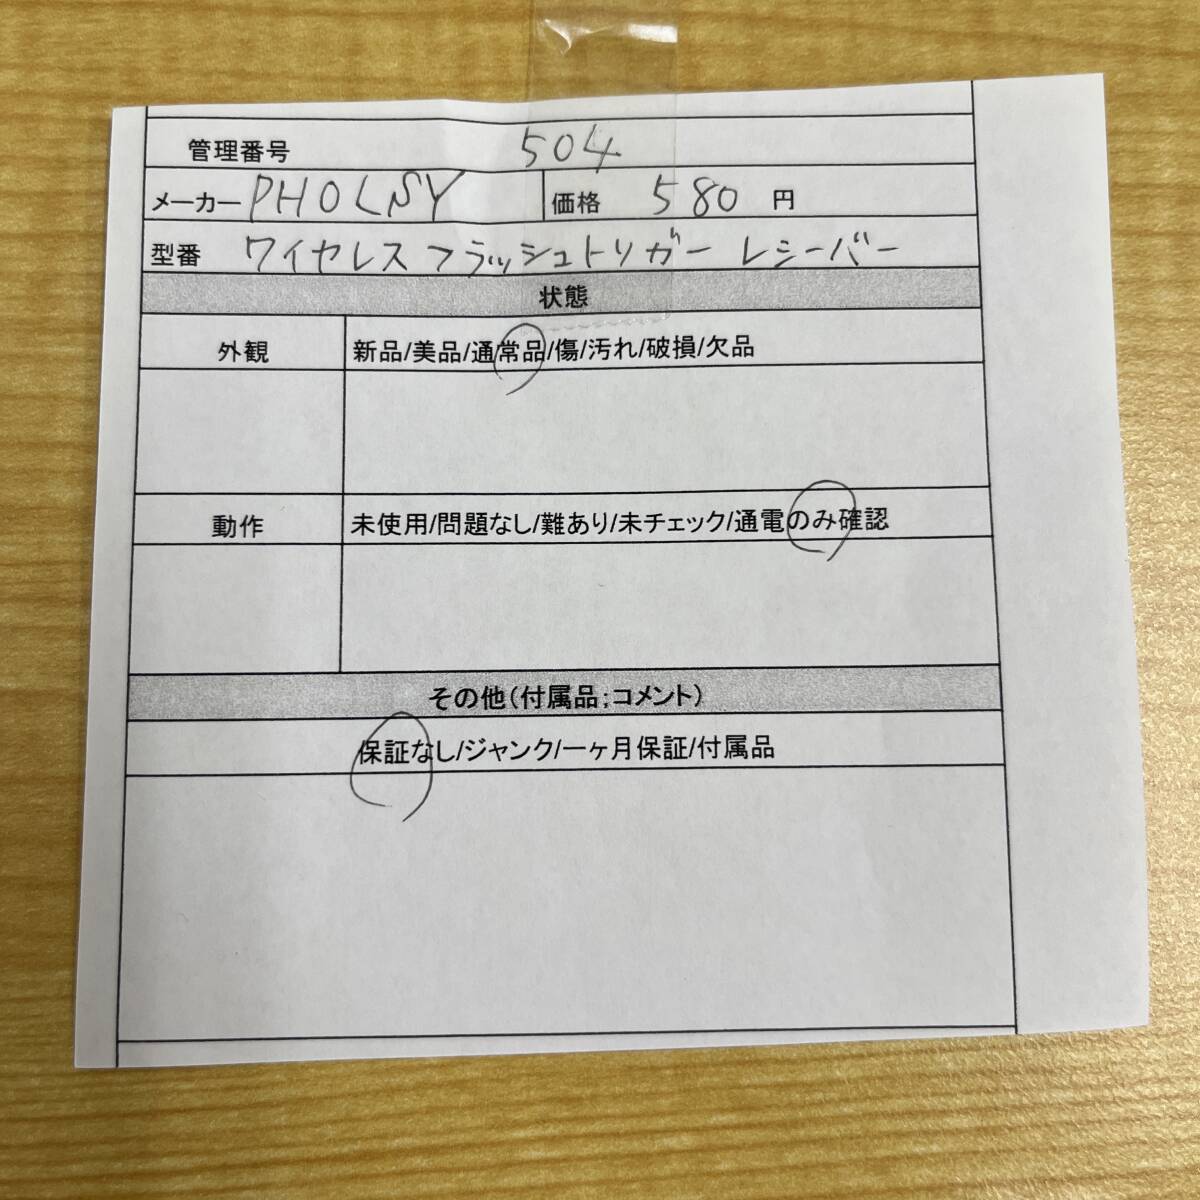 管理番号 504
メーカー PHOLSY 価格 580 円
型番 ワイヤレスフラッシュトリガー レシーバー
状態
外観 新品/美品/通常品/傷/汚れ/破損/欠品
動作 未使用/問題なし/難あり/未チェック/通電のみ確認
その他(付属品;コメント)
保証なし/ジャンク/一ヶ月保証/付属品